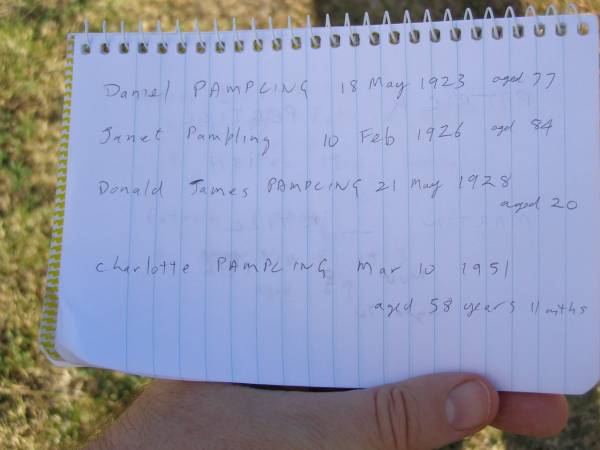 Daniel PAMPLING 18 May 1923 aged 77
Janet Pampling 10 Feb 1926 aged 84
Donald James PAMPLING 21 May 1928
aged 20
Charlotte PAMPLING Mar 10 1951
aged 58 years 11 mths